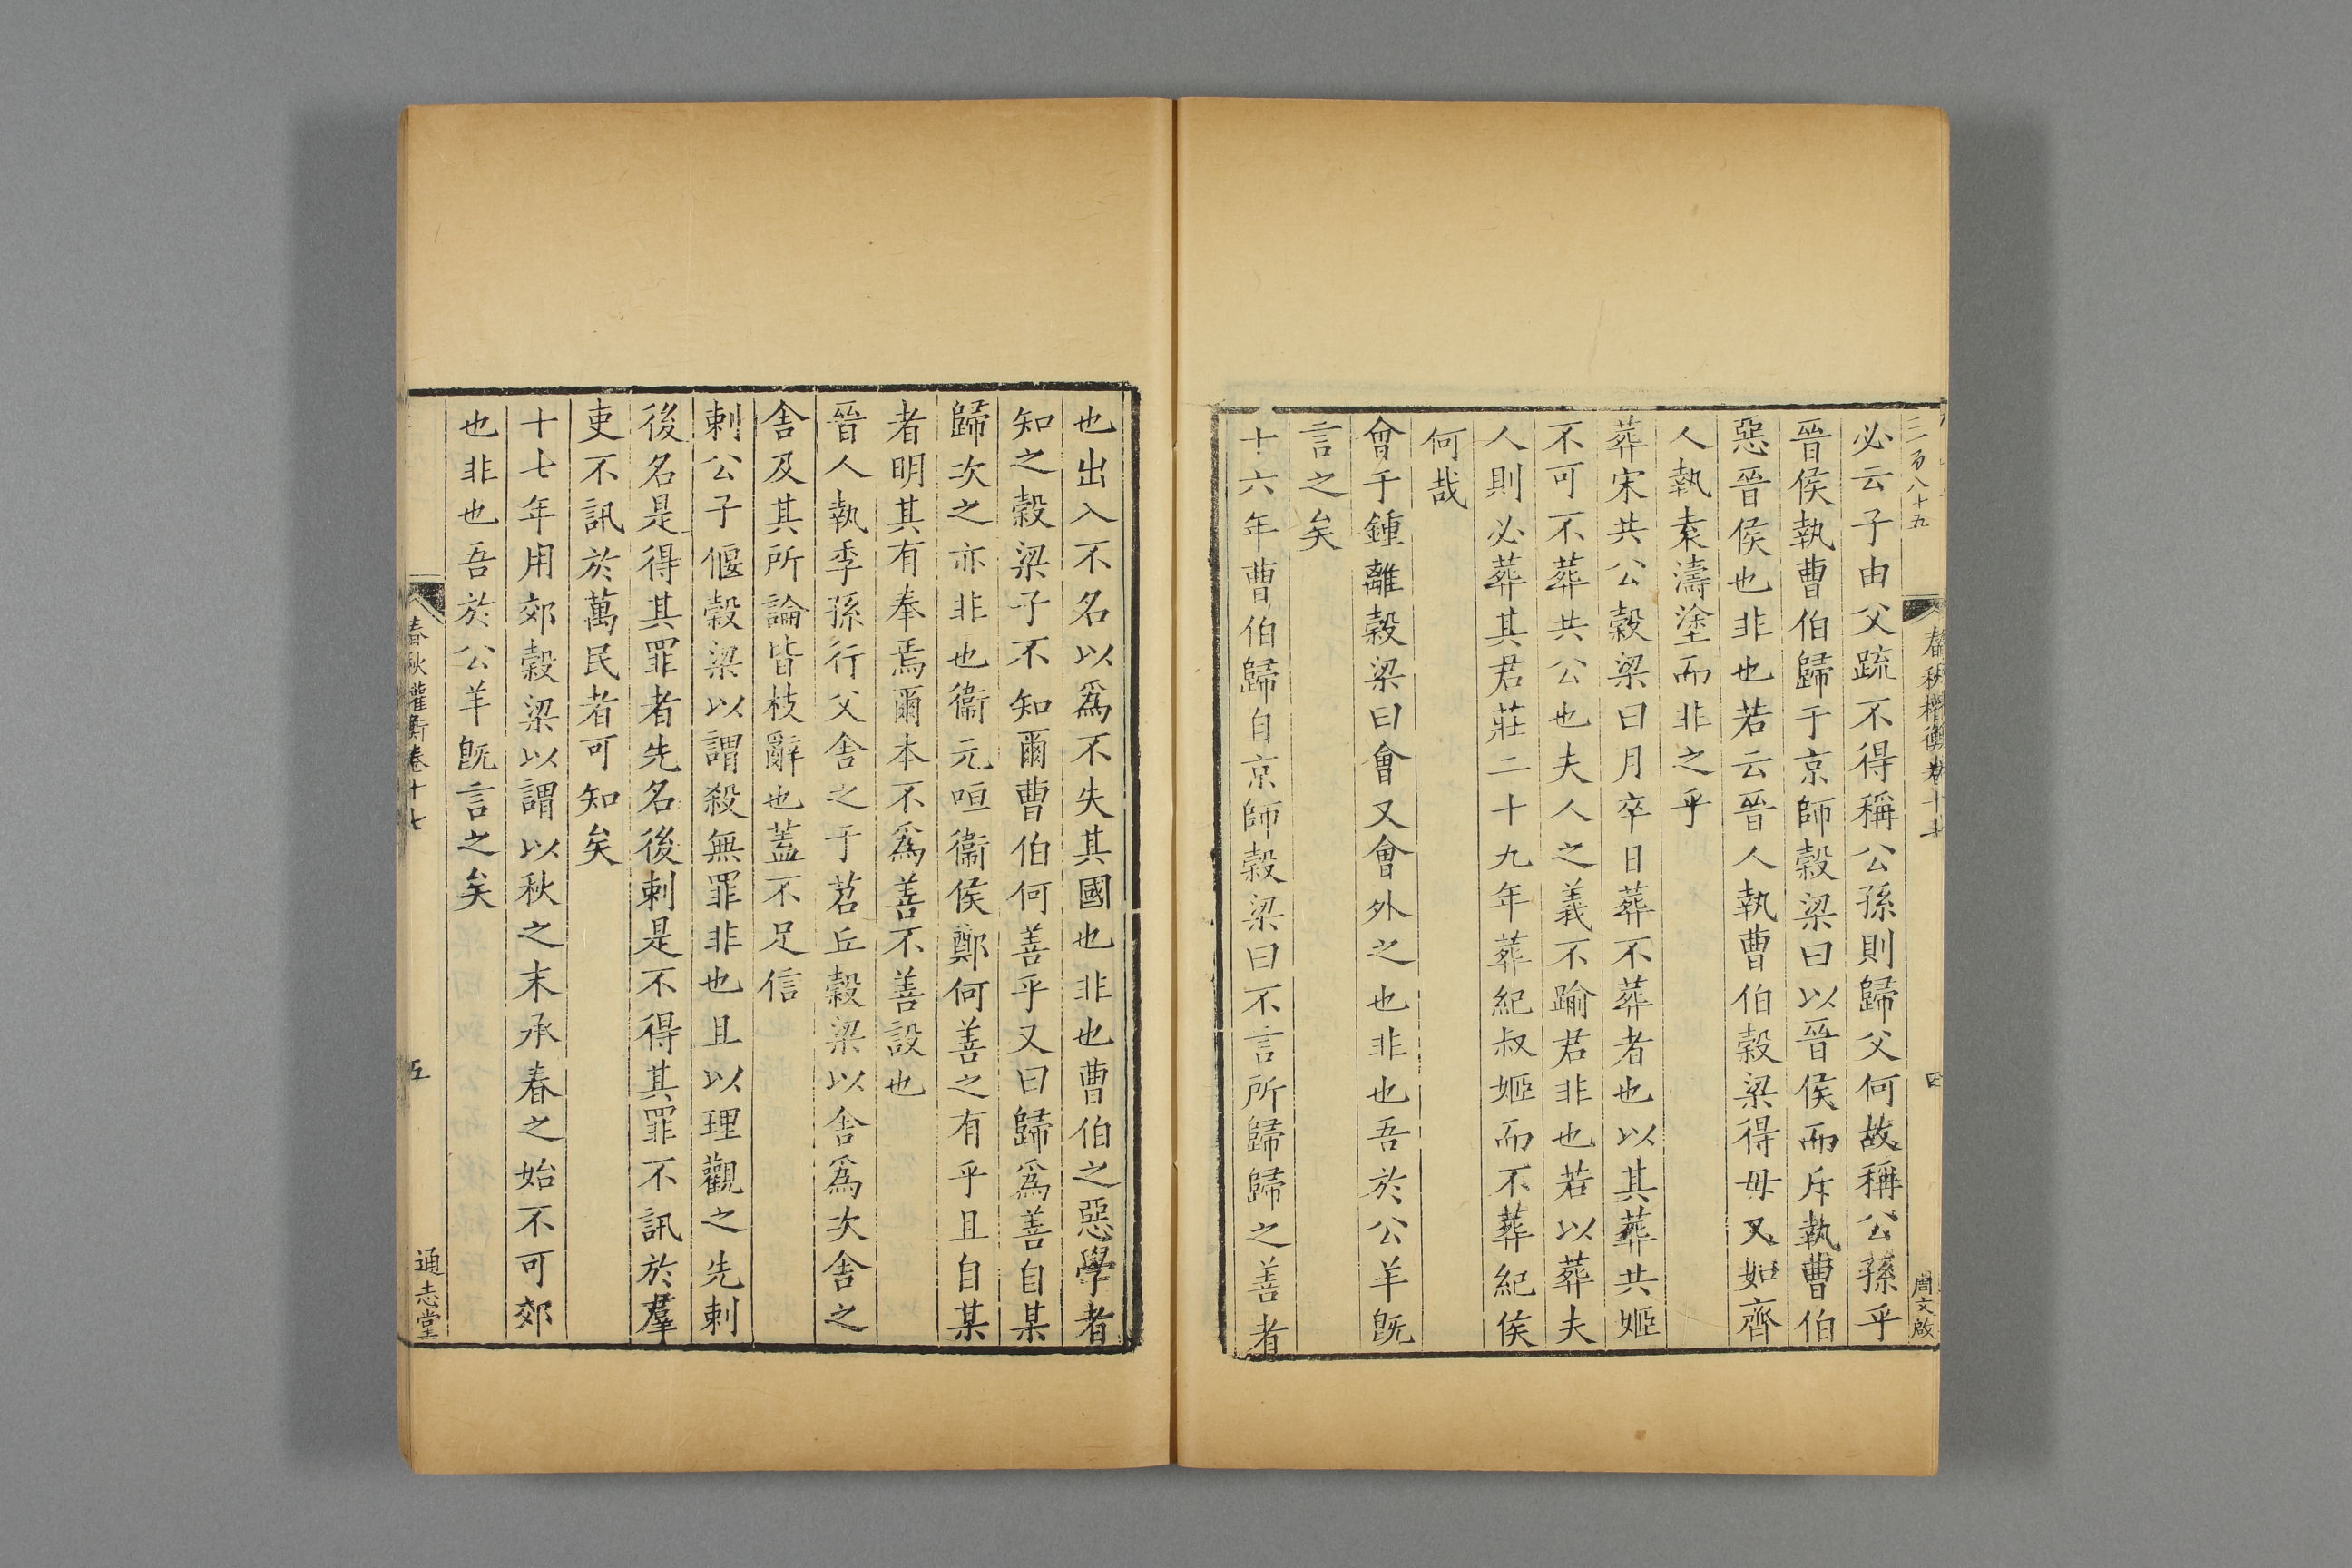 三百八十五
春秋權衡卷十七
四
周文啟
必云子由父疏不得稱公孫則歸父何故稱公孫乎
晉侯執曹伯歸于京師穀梁曰以晉侯而斥執曹伯
惡晉侯也非也若云晉人執曹伯穀梁得毋又如齊
人執袁濤塗而非之乎
葬宋共公穀梁曰月卒日葬不葬者也以其葬共姬
不可不葬共公也夫人之義不踰君非也若以葬夫
人則必葬其君莊二十九年葬紀叔姬而不葬紀侯
何哉
會于鍾離穀梁曰會又會外之也非也吾於公羊旣
言之矣
十六年曹伯歸自京師穀梁曰不言所歸歸之善者
也出入不名以爲不失其國也非也曹伯之惡學者
知之穀梁子不知爾曹伯何善乎又曰歸爲善自某
歸次之亦非也衞元咺衞侯鄭何善之有乎且自某
者明其有奉焉爾本不爲善不善設也
晉人執季孫行父舍之于苕丘穀梁以舍爲次舍之
舍及其所論皆枝辭也蓋不足信
刺公子偃穀梁以謂殺無罪非也且以理觀之先刺
後名是得其罪者先名後刺是不得其罪不訊於羣
吏不訊於萬民者可知矣
十七年用郊穀梁以謂以秋之末承春之始不可郊
也非也吾於公羊旣言之矣
春秋權衡卷十七
五
通志堂